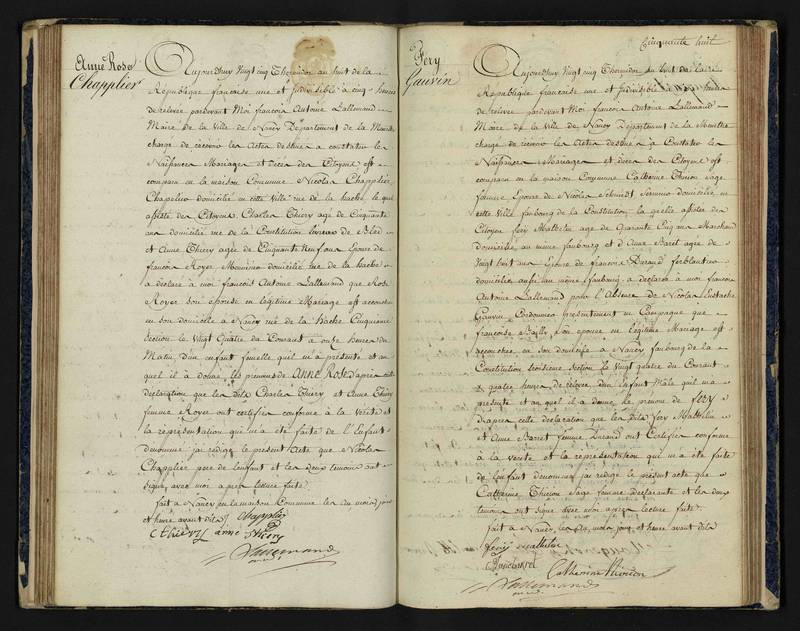 Anne Rose
Chapplier
Aujourdhuy Vingt cinq Thermidor an huit de la
République françoise une et Indivisible à cinq heures
de relevée pardevant Moi françois Antoine Lallemand
Maire de la Ville de Nancy Département de la Meurthe
chargé de recevoir les Actes destinés a constater les
Naissances Mariages et décès des Citoyens est
comparu en la maison Commune Nicolas Chapplier
Chapelier domicilié en cette Ville rue de la hache, le quel
assisté des Citoyens Charles Thiery agé de Cinquante
ans domicilié rue de la Constitution
et Anne Thiery agée de Cinquante Neuf ans Epouse de
françois Royer Menuisier domicilié rue de la hache
a déclaré à moi françois Antoine Lallemand que Rose
Royer son épouse en légitime Mariage est accouchée
en son domicile à Nancy rue de la hache Cinquieme
Section le Vingt Quatre du Courant a onze heures du
Matin, d'un enfant femelle quil m'a présenté et au
quel il a donné les prénoms de ANNE ROSE, d'après cette
déclaration que les dits Charles Thiery et Anne Thiery
femme Royer ont certifiée conforme à la Vérité et
la représentation qui m'a été faite de l'Enfant
denommé j'ai rédigé le présent acte que Nicolas
Chapplier pere de l'enfant et les deux temoins ont
signé avec moi apres lecture faite.
fait a Nancy en la maison Commune les an mois jour
et heure avant dits Chapplier
C thiery anne thiery
Lallemand
Cinquante huit
Fery
Gauvin
Aujourdhuy Vingt cinq Thermidor an huit de la
République françoise une et Indivisible heures
de relevée pardevant Moi françois Antoine Lallemand
Maire de la Ville de Nancy Département de la Meurthe
chargé de recevoir les Actes destinés à Constater les
Naissances Mariages et décès des Citoyens est
comparu en la maison Commune Catherine Thirion Sage
femme Epouse de Nicolas Schmidt domiciliée en
cette Ville faubourg de la Constitution, la quelle assistée des
Citoyens fery Mathelin agé de Quarante Cinq ans Marchand
domicilié au même faubourg et d'Anne Baret agée de
Vingt huit ans Epouse de françois Durand ferblantier
domiciliée aussi au même faubourg a déclaré à moi françois
Antoine Lallemand pour l'Absence de Nicolas Eustache
Gauvin Cordonnier présentement en Campagne que
françoise Bailly, son épouse en légitime Mariage est
accouchée en son domicile à Nancy faubourg de la
Constitution troisieme Section le Vingt quatre du Courant
à quatre heures de relevée d'un Enfant Mâle qui m'a
présenté et au quel il a donné le prénom de FERY
D'apres cette déclaration que les dits fery Mathelin
et Anne Barret femme Durand ont Certifiée conforme
à la Vérité et la représentation qui m'a été faite
de l'enfant denommé j'ai rédigé le présent acte que
Catherine Thirion Sage femme declarante et les deux
temoins ont signé avec moi apres lecture faite.
fait à Nancy, les an, mois, jour, et heure avant dits
fery mathelin
Catherine thirion
Lallemand